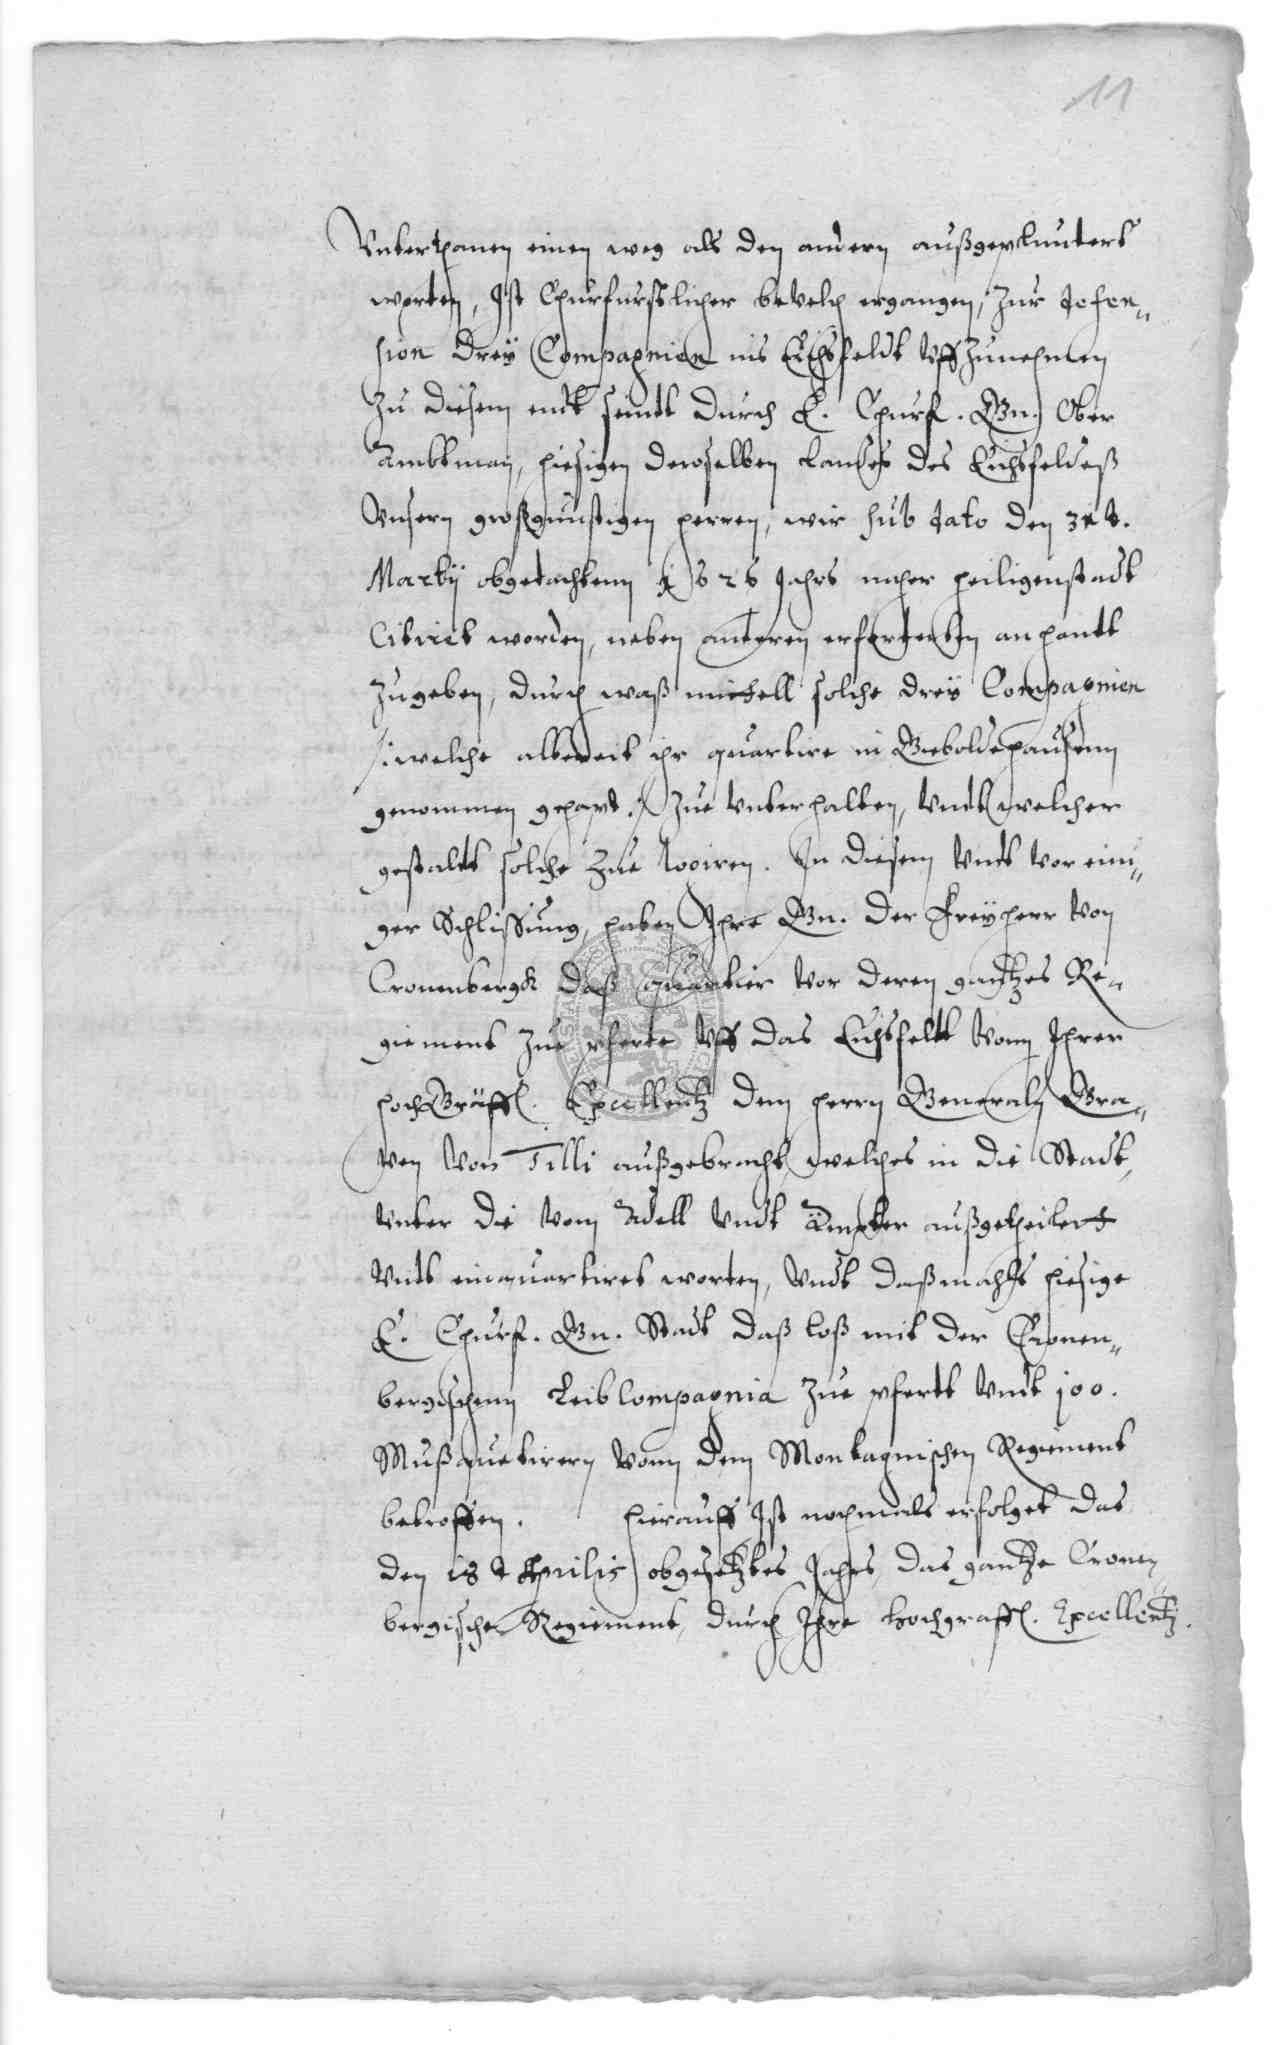 11
Vnterthanen einen weg als den andern außgeplundert
worten, Ist Churfurstlicher bevelch ergangen, zur defen„
sion drey Compagnien ins Eichsfeldt vffzunehmen
zu diesem endt seindt durch E. Churf. Gn. Ober
Ambtman, hiesigen deroselben Landes des Eichsfeldeß
Vnsern großgunstigen herren, wir sub dato den
Martij obgedachtenn 1626 Jahrs naher heiligenstadt
Citiret worden, neben anderen erforderten anhandt
zugeben, durch waß mittell solche drey Compagnien
/: welche allbereit ihr quartire in Gieboldehausenn
genommen gehapt :/ zue vnterhalten, vndt welcher
gestaldt solche zue logiren. In diesem vndt vor eini„
ger Schlissung, haben Ihre Gn. der Freyherr von
Cronenbergk daß quartier vor deren gantzes Re„
giement zue pferde vff das Eichsfeldt vonn Ihrer
hochGräffl. Excellentz dem herrn Generaln Gra„
ven von Tilli außgebracht, welches in die Stadt,
vnter die vom Adell vndt Ämpter außgetheilet
vndt einquartiret worten, vndt daßmahls hiesige
E. Churf. Gn. Stadt daß loß mit der Cronen„
bergischenn Leib Compagnia zue pferdt vndt 100.
Mußquetirern vonn dem Montagnischen Regiement
betroffen. Hierauff Ist nochmals erfolget das
den 18 t Aprilis obgesetztes Jahrs, das gantze Cronen„
bergische Regiement, durch Ihre hochgraffl. Excellentz.